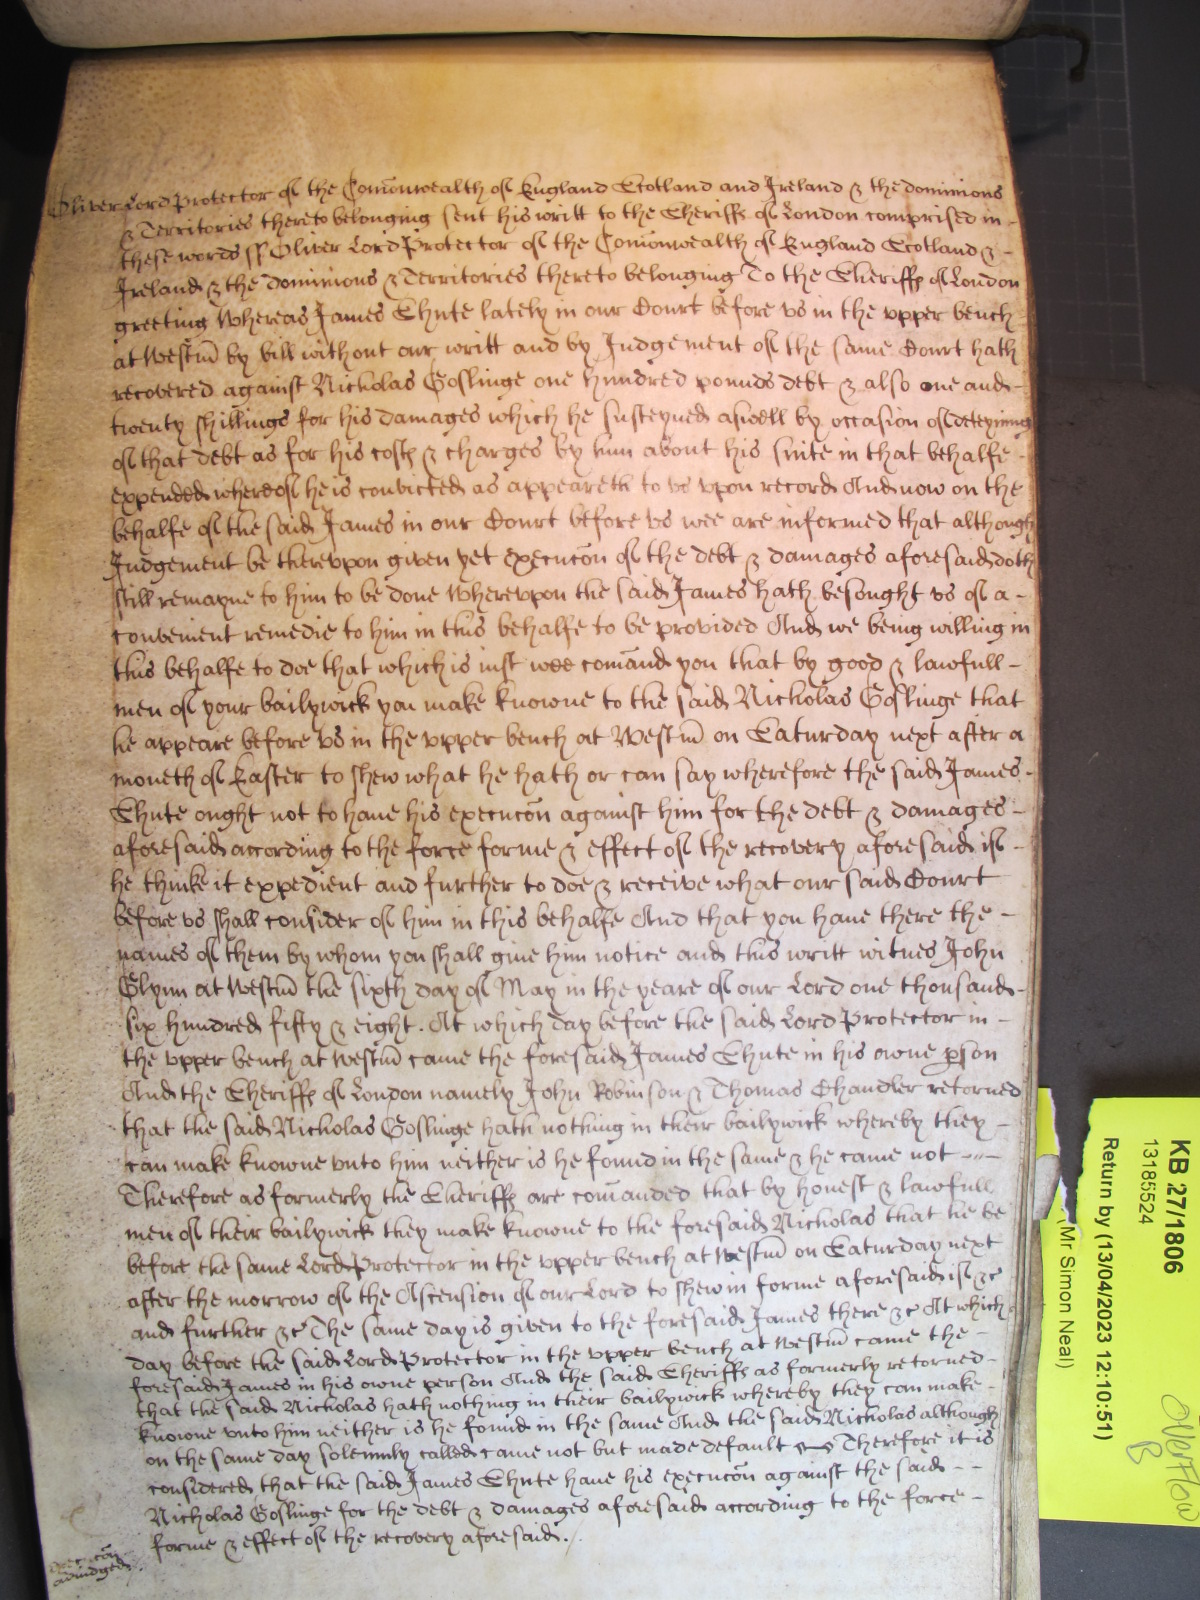 Oliver Lord Protector of the Com̄onwealth of England Scotland and Ireland & the dominions
& Territories thereto belonging sent his writt to the Sheriffs of London comprised in -
these words ss Oliver Lord Protector of the Com̄onwealth of England Scotland & -
Ireland & the dominions & Territories thereto belonging To the Sheriffs of London
greeting Whereas James Shute lately in our Court before vs in the vpper bench
at Westm̄ by bill without our writt and by Judgement of the same Court hath
recovered against Nicholas Goslinge one hundred pounds debt & also one and -
twenty shillings for his damages which he susteyned aswell by occasion of deteyning
of that debt as for his costs & charges by him about his suite in that behalfe -
expended whereof he is convicted as appeareth to vs vpon record And now on the
behalfe of the said James in our Court before vs wee are informed that although
Judgement be therevpon given yet execucōn of the debt & damages aforesaid doth
still remayne to him to be done Wherevpon the said James hath besought vs of a -
convenient remedie to him in this behalfe to be provided And we being willing in
this behalfe to doe that which is iust wee com̄and you that by good & lawfull -
men of your bailywick you make knowne to the said Nicholas Goslinge that
he appeare before vs in the vpper bench at Westm̄ on Saturday next after a
moneth of Easter to shew what he hath or can say wherefore the said James -
Shute ought not to haue his execucōn against him for the debt & damages -
aforesaid according to the force forme & effect of the recovery aforesaid if -
he thinke it expedient and further to doe & receive what our said Court
before vs shall consider of him in this behalfe And that you haue there the -
names of them by whom you shall give him notice and this writt witnes John
Glynn at Westm̄ the sixth day of May in the yeare of our Lord one thousand -
six hundred fifty & eight. At which day before the said Lord Protector in -
the vpper bench at Westm̄ came the foresaid James Shute in his owne pson
And the Sheriffs of London namely John Robinson & Thomas Chandler retorned
that the said Nicholas Goslinge hath nothing in their bailywick whereby they -
can make knowne vnto him neither is he found in the same & he came not - - -
Therefore as formerly the Sheriffs are com̄anded that by honest & lawfull
men of their bailywick they make knowne to the foresaid Nicholas that he be
before the same Lord Protector in the vpper bench at Westm̄ on Saturday next
after the morrow of the Ascension of our Lord to shew in forme aforesaid if &c
and further &c The same day is given to the foresaid James there &c At which
day before the said Lord Protector in the vpper bench at Westm̄ came the -
foresaid James in his owne person And the said Sheriffs as formerly retorned -
that the said Nicholas hath nothing in their bailywick whereby they can make -
knowne vnto him neither is he found in the same And the said Nicholas although
on the same day solemnly called came not but made default Therefore it is
considered that the said James Shute haue his execucōn against the said - -
Nicholas Goslinge for the debt & damages aforesaid according to the force -
forme & effect of the recovery aforesaid./.
execucōn
adiudged
KB 27/1806
13185524
Return by (13/04/2023 12:10:51)
(Mr Simon Neal)
Overflow
B